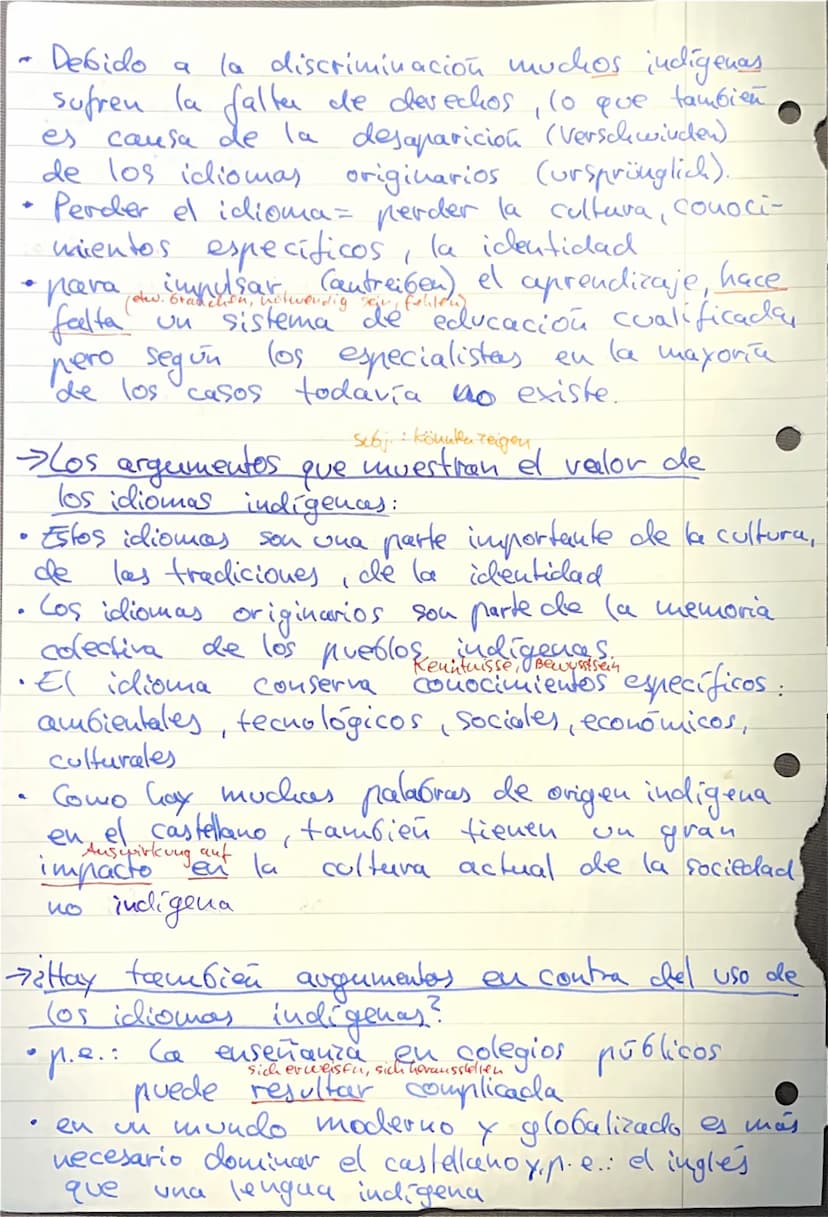 - Debido a la discriminación muchos indígenas
sufren la falta de derechos, lo que también
es causa de la desaparición (Verschwinden)
de los idiomas originarios (ursprünglich).
• Perder el idioma = perder la cultura, conoci-
mientos específicos, la identidad
• para impulsar (antreiben) el aprendizaje, hace
(etw. brauchen, notwendig sein, fehlen)
falta un sistema de educación cualificada,
pero según los especialistas en la mayoría
de los casos todavía no existe.
Subj.: könnte zeigen
→ Los argumentos que muestran el valor de
los idiomas indígenas:
• Estos idiomas son una parte importante de la cultura,
de las tradiciones, de la identidad
• Los idiomas originarios son parte de la memoria
colectiva de los pueblos indígenas.
Kenntnisse, Bewusstsein
• El idioma conserva conocimientos específicos:
ambientales, tecnológicos, sociales, económicos,
culturales
• Como hay muchas palabras de origen indígena
en el castellano, también tienen un gran
Auswirkung auf
impacto en la cultura actual de la sociedad
no indígena
→ ¿Hay también argumentos en contra del uso de
los idiomas indígenas?
• p.e.: La enseñanza en colegios públicos
sich erweisen, sich herausstellen
puede resultar complicada
• en un mundo moderno y globalizado es más
necesario dominar el castellano y, p.e.: el inglés
que una lengua indígena